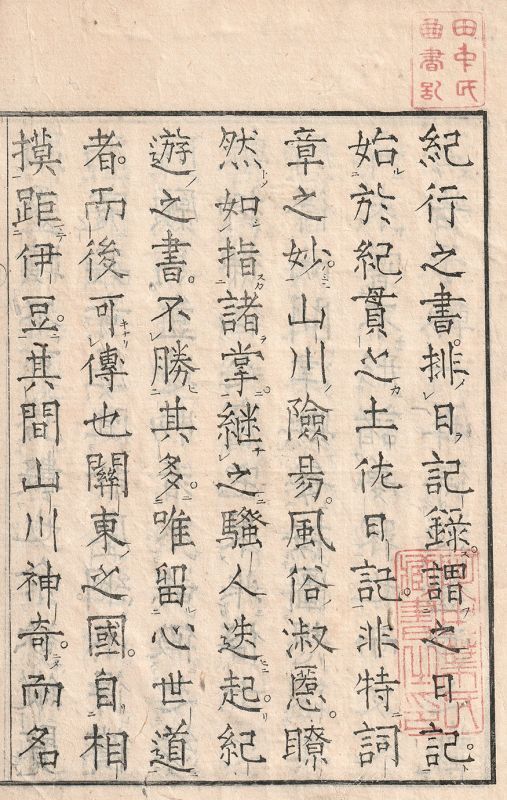 田中氏
紀行之書。排日記録。謂之日記
始於紀貫之土佐日記。非特詞
章之妙。山川險易。風俗淑慝。瞭
然如指諸掌。継之騒人迭起。紀
遊之書。不勝其多。唯留心世道
者。而後可傳也關東之國。自相
摸距伊豆。其間山川神奇。而名